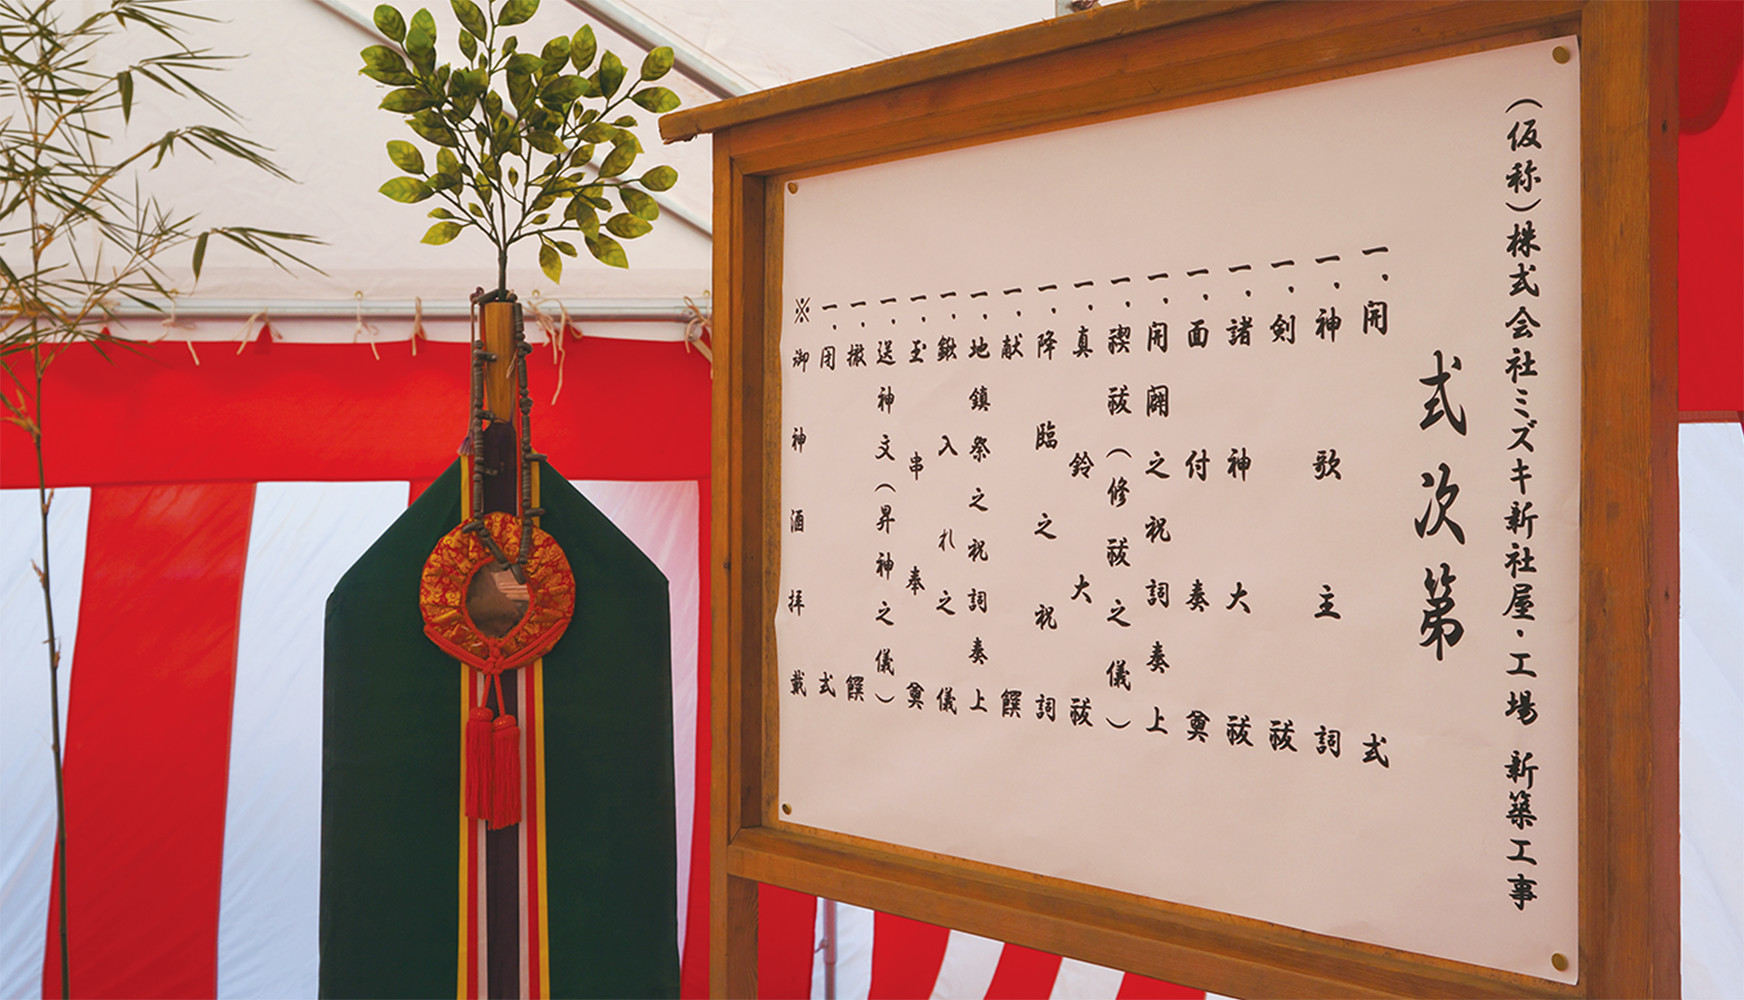 (仮称)株式会社ミズキ新社屋・工場 新築工事
式次第
一、開式
一、神歌主詞
一、剣祓
一、諸神大祓
一、面付奏奠
一、開闢之祝詞奏上
一、禊祓(修祓之儀)
一、真鈴大祓
一、降臨之祝詞
一、献饌
一、地鎮祭之祝詞奏上
一、鍬入れ之儀
一、玉串奉奠
一、送神文(昇神之儀)
一、撤饌
一、閉式
※御神酒拝載